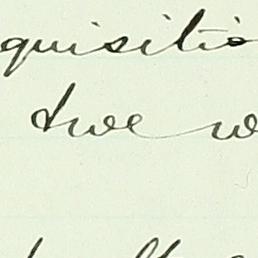 quisitio
due w